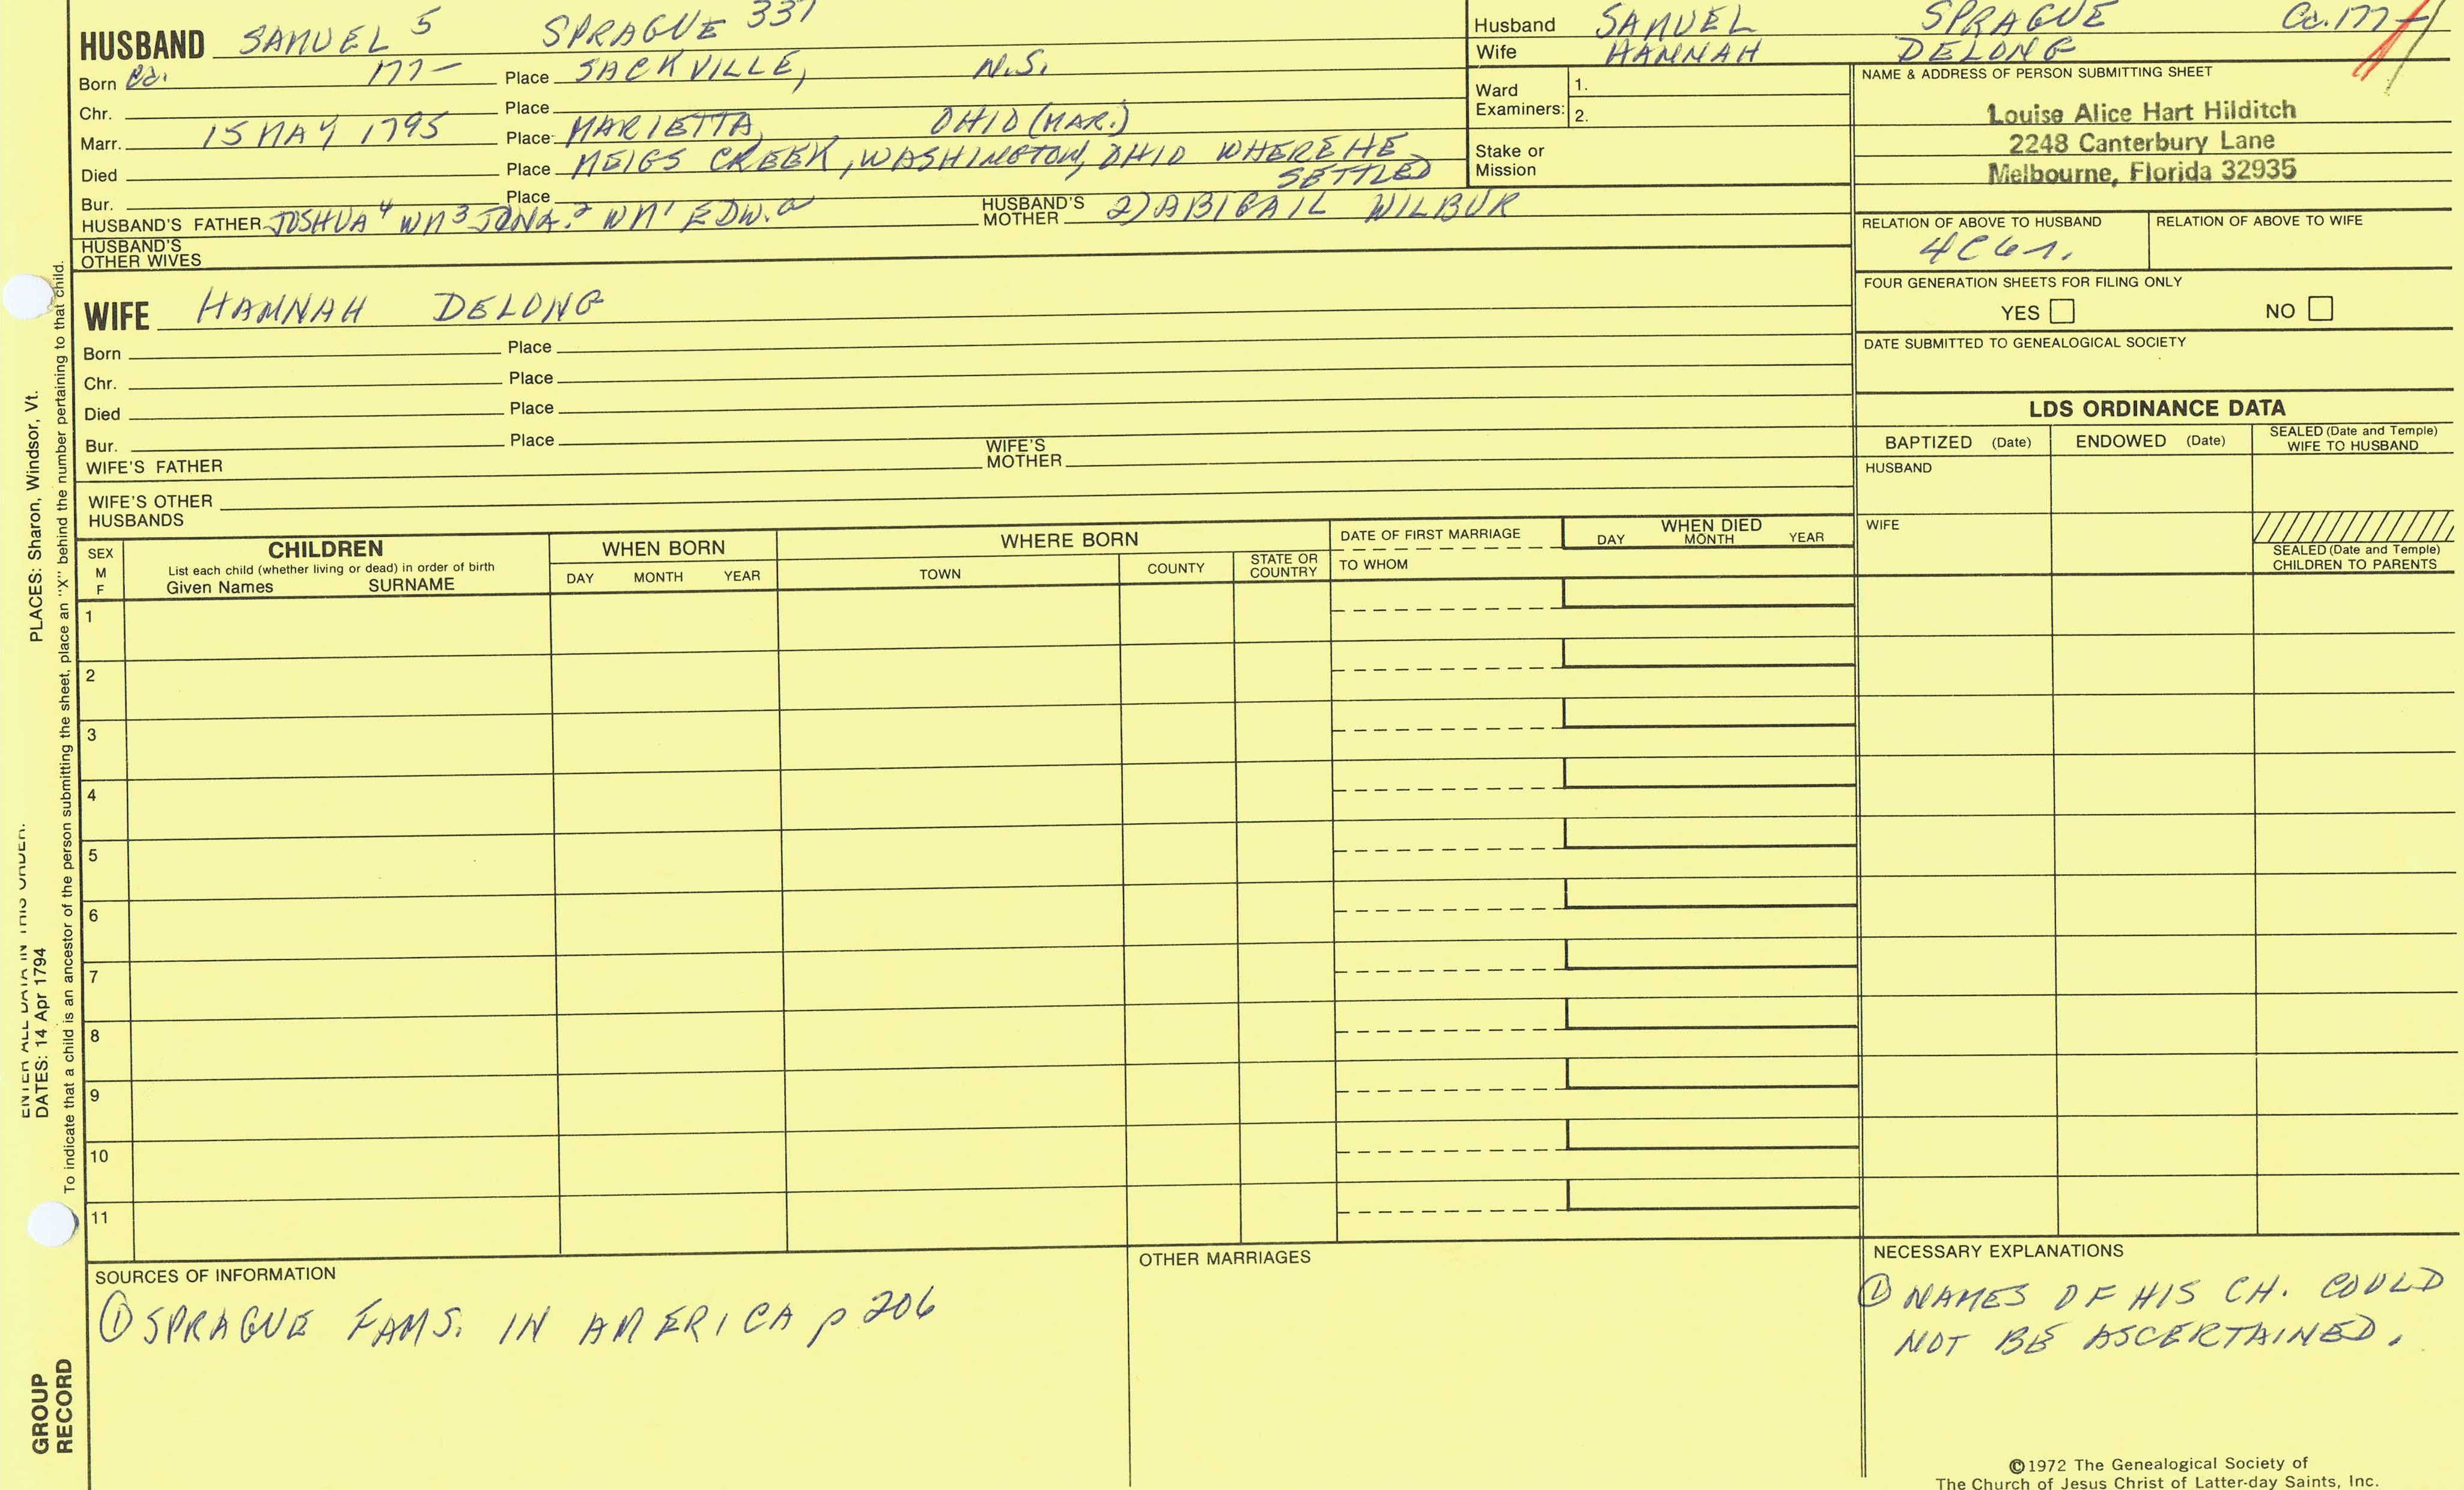 HUSBAND SAMUEL 5 SPRAGUE 337
Born Ca. 177- Place SACKVILLE, N.S.
Chr. Place
Marr. 15 MAY 1795 Place MARIETTA, OHIO (MAR.)
Died Place MEIGS CREEK, WASHINGTON, OHIO WHERE HE SETTLED
Bur. Place
HUSBAND'S FATHER JOSHUA 4 WM 3 JONA. 2 WM 1 EDW. a HUSBAND'S MOTHER 2) ABIGAIL WILBUR
HUSBAND'S OTHER WIVES
Husband SAMUEL SPRAGUE Ca. 177-
Wife HANNAH DELONG
Ward Examiners: 1.
2.
Stake or Mission
NAME & ADDRESS OF PERSON SUBMITTING SHEET
Louise Alice Hart Hilditch
2248 Canterbury Lane
Melbourne, Florida 32935
RELATION OF ABOVE TO HUSBAND RELATION OF ABOVE TO WIFE
4C6r.
FOUR GENERATION SHEETS FOR FILING ONLY
YES NO
DATE SUBMITTED TO GENEALOGICAL SOCIETY
WIFE HANNAH DELONG
Born Place
Chr. Place
Died Place
Bur. Place
WIFE'S FATHER WIFE'S MOTHER
WIFE'S OTHER HUSBANDS
LDS ORDINANCE DATA
BAPTIZED (Date) ENDOWED (Date) SEALED (Date and Temple) WIFE TO HUSBAND
HUSBAND
WIFE
SEALED (Date and Temple) CHILDREN TO PARENTS
SEX M F
CHILDREN
List each child (whether living or dead) in order of birth
Given Names SURNAME
WHEN BORN
DAY MONTH YEAR
WHERE BORN
TOWN COUNTY STATE OR COUNTRY
DATE OF FIRST MARRIAGE
TO WHOM
WHEN DIED
DAY MONTH YEAR
1
2
3
4
5
6
7
8
9
10
11
SOURCES OF INFORMATION
① SPRAGUE FAMS. IN AMERICA p 206
OTHER MARRIAGES
NECESSARY EXPLANATIONS
① NAMES OF HIS CH. COULD
NOT BE ASCERTAINED.
©1972 The Genealogical Society of
The Church of Jesus Christ of Latter-day Saints, Inc.
ENTER ALL DATA IN THIS ORDER:
DATES: 14 Apr 1794 PLACES: Sharon, Windsor, Vt.
To indicate that a child is an ancestor of the person submitting the sheet, place an "X" behind the number pertaining to that child.
GROUP
RECORD